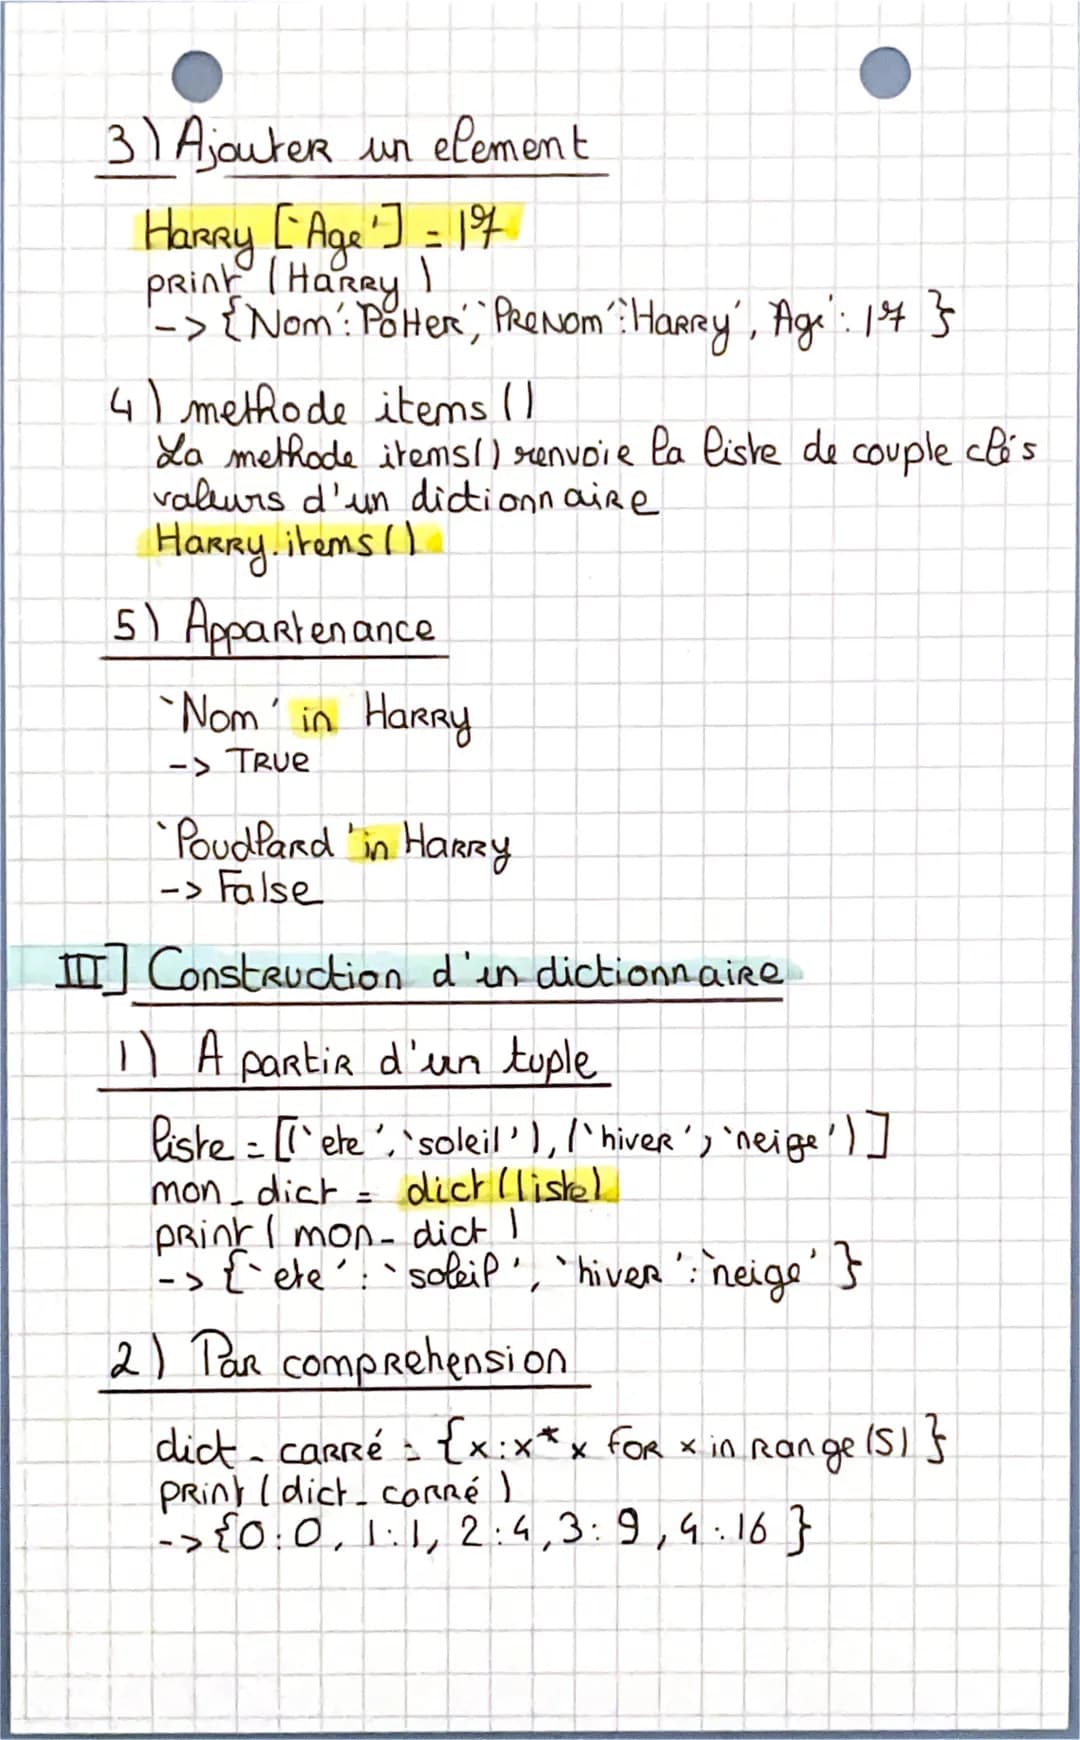 3) Ajouter un element
Harry ['Age'] = 17
print (Harry)
-> {'Nom': 'Potter', 'Prenom': 'Harry', 'Age': 17 }
4) methode items ()
La methode items() renvoie la liste de couple clés
valeurs d'un dictionnaire
Harry.items()
5) Appartenance
'Nom' in Harry
-> True
'Poudlard' in Harry
-> False
III] Construction d'un dictionnaire
1) A partir d'un tuple
liste = [('ete', 'soleil'), ('hiver', 'neige')]
mon_dict = dict (liste)
print ( mon_dict )
-> {'ete': 'soleil', 'hiver': 'neige' }
2) Par comprehension
dict_carré = {x:x*x for x in range (5) }
print (dict_carré )
-> {0:0, 1:1, 2:4, 3:9, 4:16 }